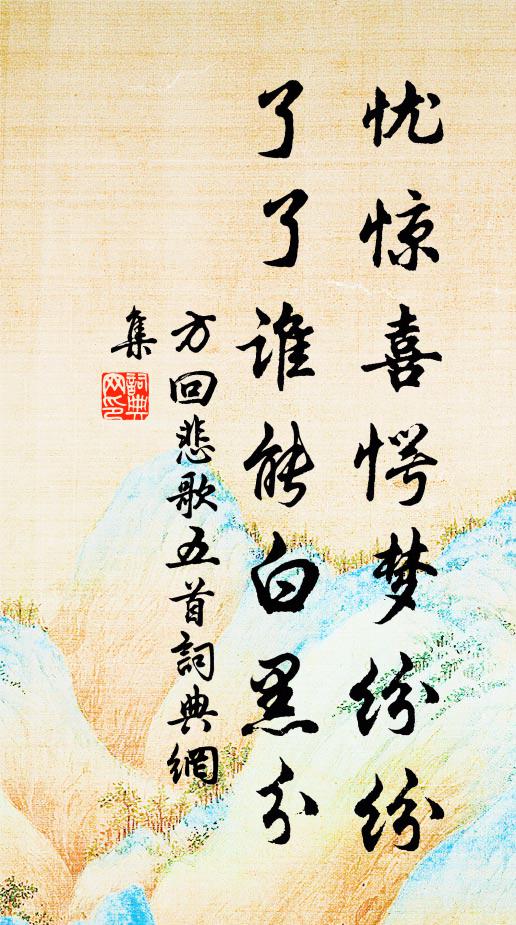 忧惊喜愕梦纷纷
了了谁能白黑分
方回悲歌五首詞典網
集
詞典
网印